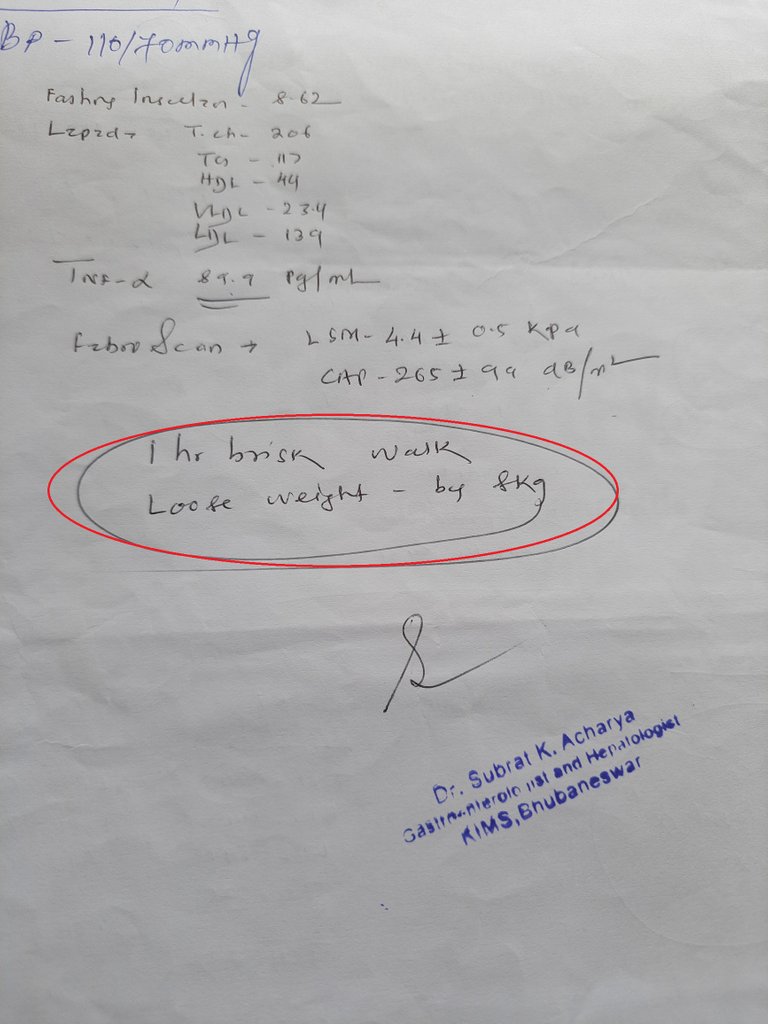 BP - 110/70mmHg
Fasting Insulin - 8.62
Lipid → T.ch - 206
TG - 117
HDL - 44
VLDL - 23.4
LDL - 139
TNF-α 89.9 pg/mL
FibroScan → LSM - 4.4 ± 0.5 KPa
CAP - 265 ± 99 dB/mL
1 hr brisk walk
Loose weight - by 8kg
Dr. Subrat K. Acharya
Gastroenterologist and Hepatologist
KIMS, Bhubaneswar